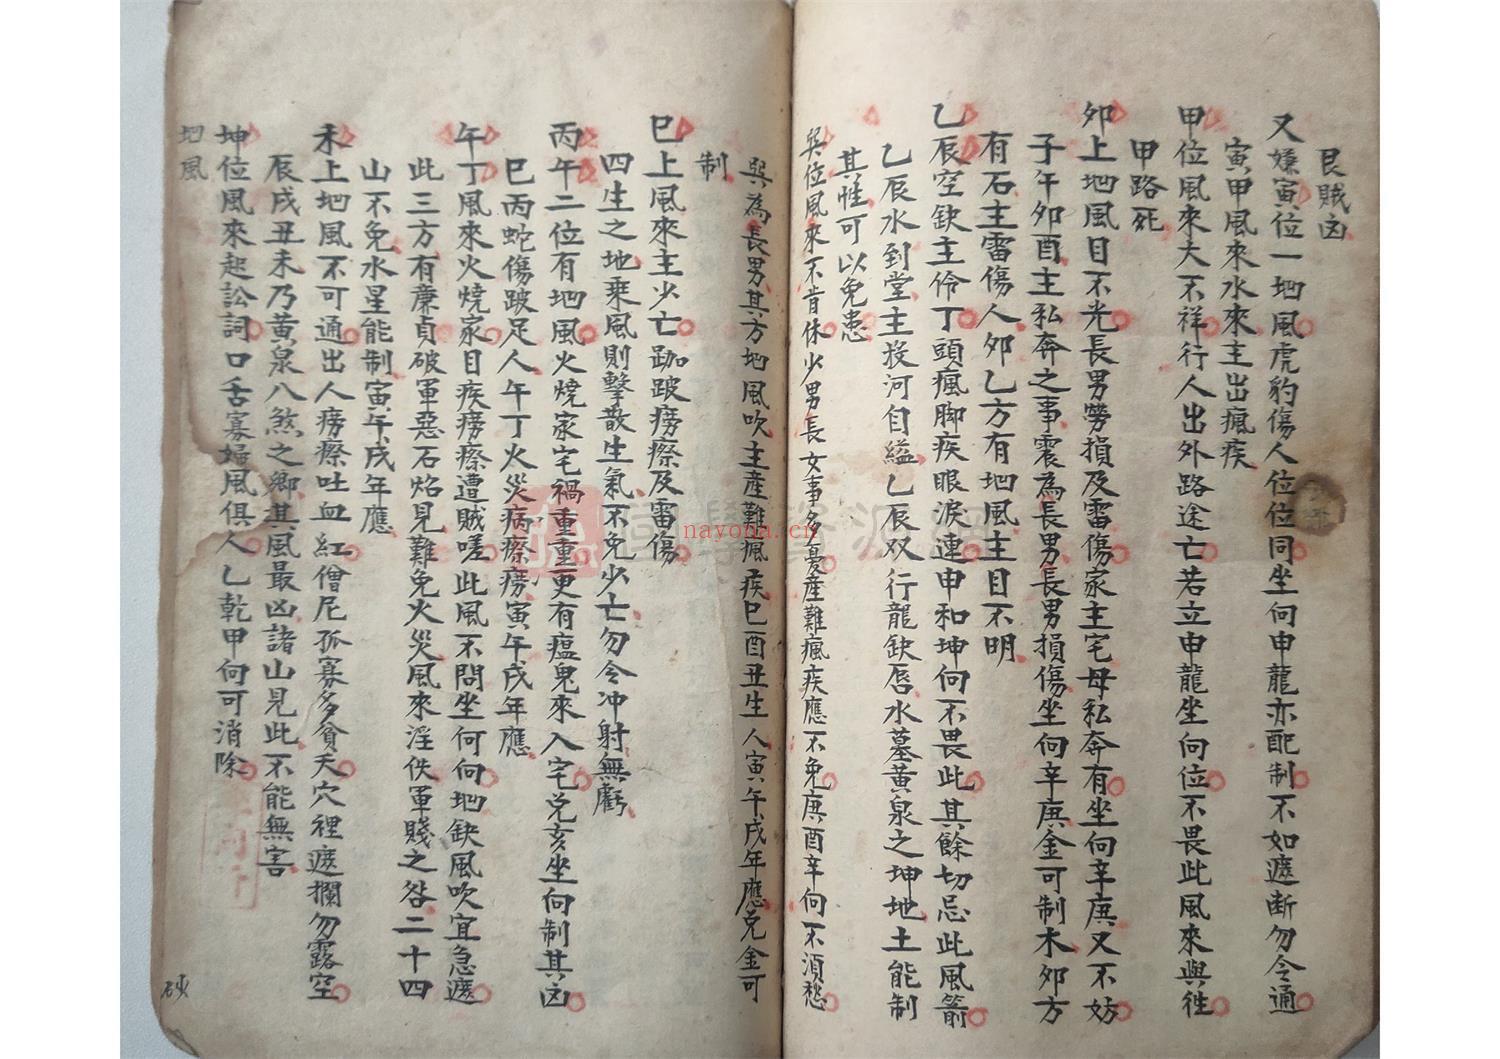 艮賊凶
又嫌寅位一地風虎豹傷人位位同坐向申龍亦配制不如遮断勿令通
寅甲風來水來主出瘋疾
甲位風來大不祥行人出外路途亡若立申龍坐向位不畏此風來與徃
甲路死
夘上地風目不光長男勞損及雷傷家主宅母私奔有坐向辛庚又不妨
子午夘酉主私奔之事震為長男長男損傷坐向辛庚金可制木夘方
有石主雷傷人夘乙方有地風主目不明
乙辰空缺主伶丁頭瘋脚疾眼淚連申和坤向不畏此其餘切忌此風箭
乙辰水到堂主投河自縊乙辰双行龍缺唇水墓黃泉之坤地土能制
其性可以免患
巽位風來不肯休少男長女事多憂産難瘋疾應不免庚酉辛向不須愁
巽為長男其方地風吹主産難瘋疾巳酉丑生人寅午戌年應兌金可
制
巳上風來主少亡跏跛癆瘵及雷傷
四生之地乘風則擊散生氣不免少亡勿令冲射無虧
丙午二位有地風火燒家宅禍重重更有瘟鬼來入宅兌亥坐向制其凶
巳丙蛇傷跛足人午丁火災病瘵癆寅午戌年應
午丁風來火燒家目疾癆瘵遭賊嗟此風不問坐何向地缺風吹宜急遮
此三方有亷貞破軍惡石焰見難免火災風來淫佚軍賤之咎二十四
山不免水星能制寅午戌年應
未上地風不可通出人癆瘵吐血紅僧尼孤寡多貪夭穴裡遮攔勿露空
辰戌丑未乃黃泉八煞之鄉其風最凶諸山見此不能無害
坤位風來起訟詞口舌寡婦風俱人乙乾甲向可消除
地風
國學資源網
nayona.cn